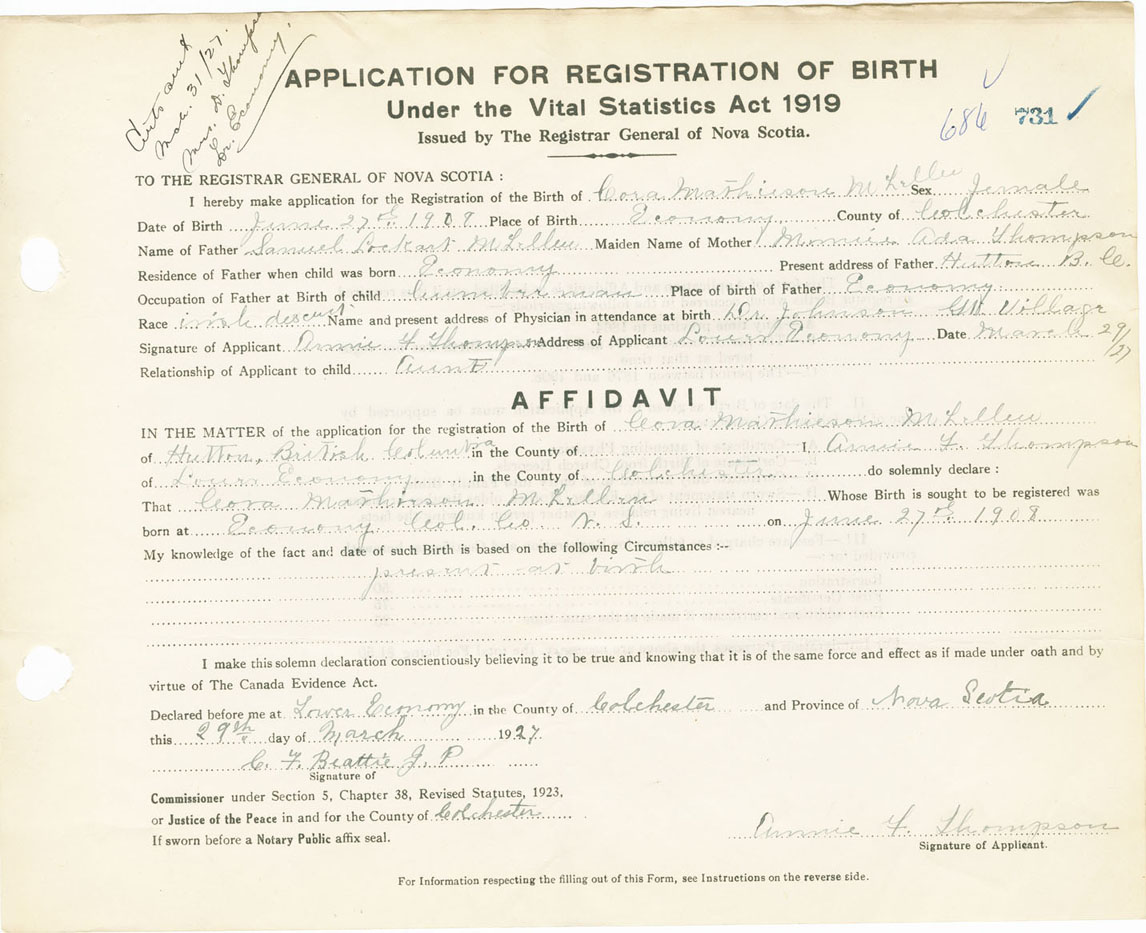 Certs sent
Mch. 31/27.
Mrs. D. Thompson
Lr. Economy.
APPLICATION FOR REGISTRATION OF BIRTH
Under the Vital Statistics Act 1919
Issued by The Registrar General of Nova Scotia.
686 731
TO THE REGISTRAR GENERAL OF NOVA SCOTIA :
I hereby make application for the Registration of the Birth of Cora Mathieson McLellen Sex Female
Date of Birth June 27th 1908 Place of Birth Economy County of Colchester
Name of Father Samuel Lockart McLellen Maiden Name of Mother Monnie Ada Thompson
Residence of Father when child was born Economy Present address of Father Hutton B. C.
Occupation of Father at Birth of child Lumber man Place of birth of Father Economy
Race irish descent Name and present address of Physician in attendance at birth Dr. Johnson Gt. Village
Signature of Applicant Annie F Thompson Address of Applicant Lower Economy Date March 29/27
Relationship of Applicant to child Aunt
AFFIDAVIT
IN THE MATTER of the application for the registration of the Birth of Cora Mathieson McLellen
of Hutton, British Columbia in the County of I, Annie F. Thompson
of Lower Economy in the County of Colchester do solemnly declare :
That Cora Mathieson McLellen Whose Birth is sought to be registered was
born at Economy Col. Co N. S. on June 27th 1908
My knowledge of the fact and date of such Birth is based on the following Circumstances :--
present at birth
I make this solemn declaration conscientiously believing it to be true and knowing that it is of the same force and effect as if made under oath and by
virtue of The Canada Evidence Act.
Declared before me at Lower Economy in the County of Colchester and Province of Nova Scotia
this 29th day of March 1927
C. F. Beattie J. P
Signature of
Commissioner under Section 5, Chapter 38, Revised Statutes, 1923,
or Justice of the Peace in and for the County of Colchester
If sworn before a Notary Public affix seal.
Annie F. Thompson
Signature of Applicant.
For Information respecting the filling out of this Form, see Instructions on the reverse side.